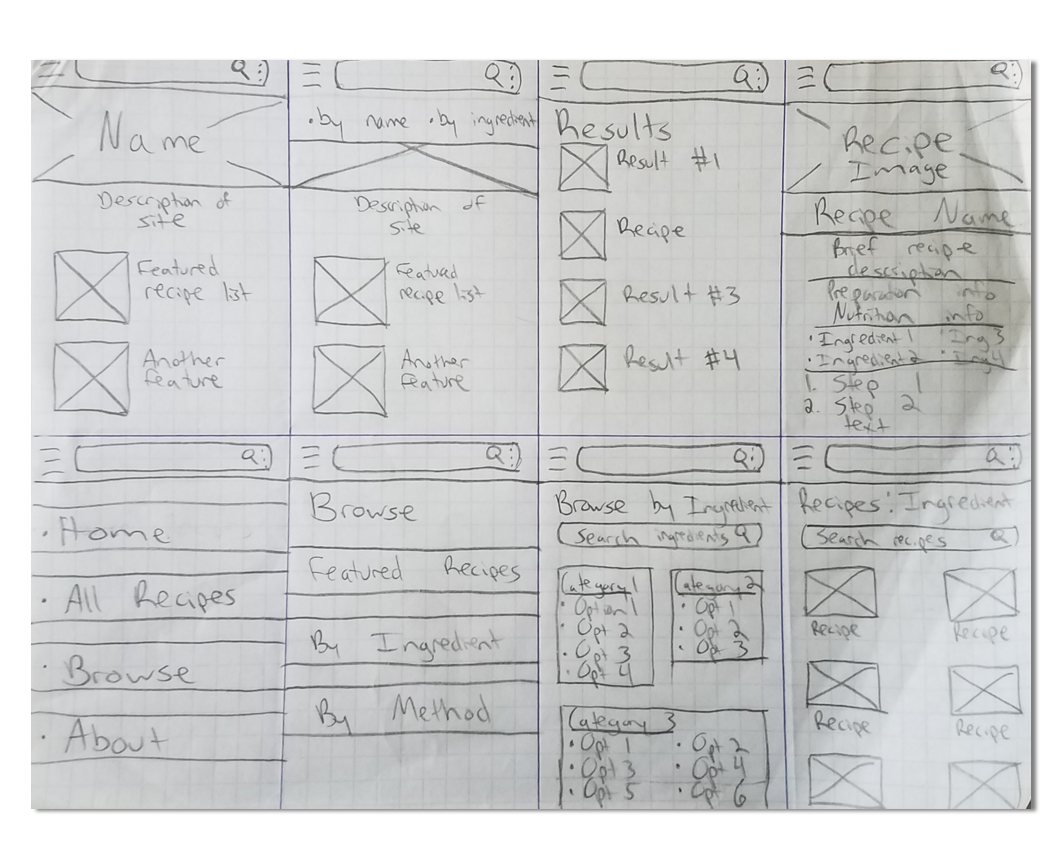 Name
Description of
site
Featured
recipe list
Another
feature
• by name • by ingredient
Description of
site
Featured
recipe list
Another
feature
Results
Result #1
Recipe
Result #3
Result #4
Recipe
Image
Recipe Name
Brief recipe
description
Preparation info
Nutrition info
• Ingredient 1 • Ing 3
• Ingredient 2 • Ing 4
1. Step 1
2. Step 2
text
• Home
• All Recipes
• Browse
• About
Browse
Featured Recipes
By Ingredient
By Method
Browse by Ingredient
Search ingredients
Category 1
• Option 1
• Opt 2
• Opt 3
• Opt 4
Category 2
• Opt 1
• Opt 2
• Opt 3
Category 3
• Opt 1 • Opt 2
• Opt 3 • Opt 4
• Opt 5 • Opt 6
Recipes: Ingredient
Search recipes
Recipe Recipe
Recipe Recipe